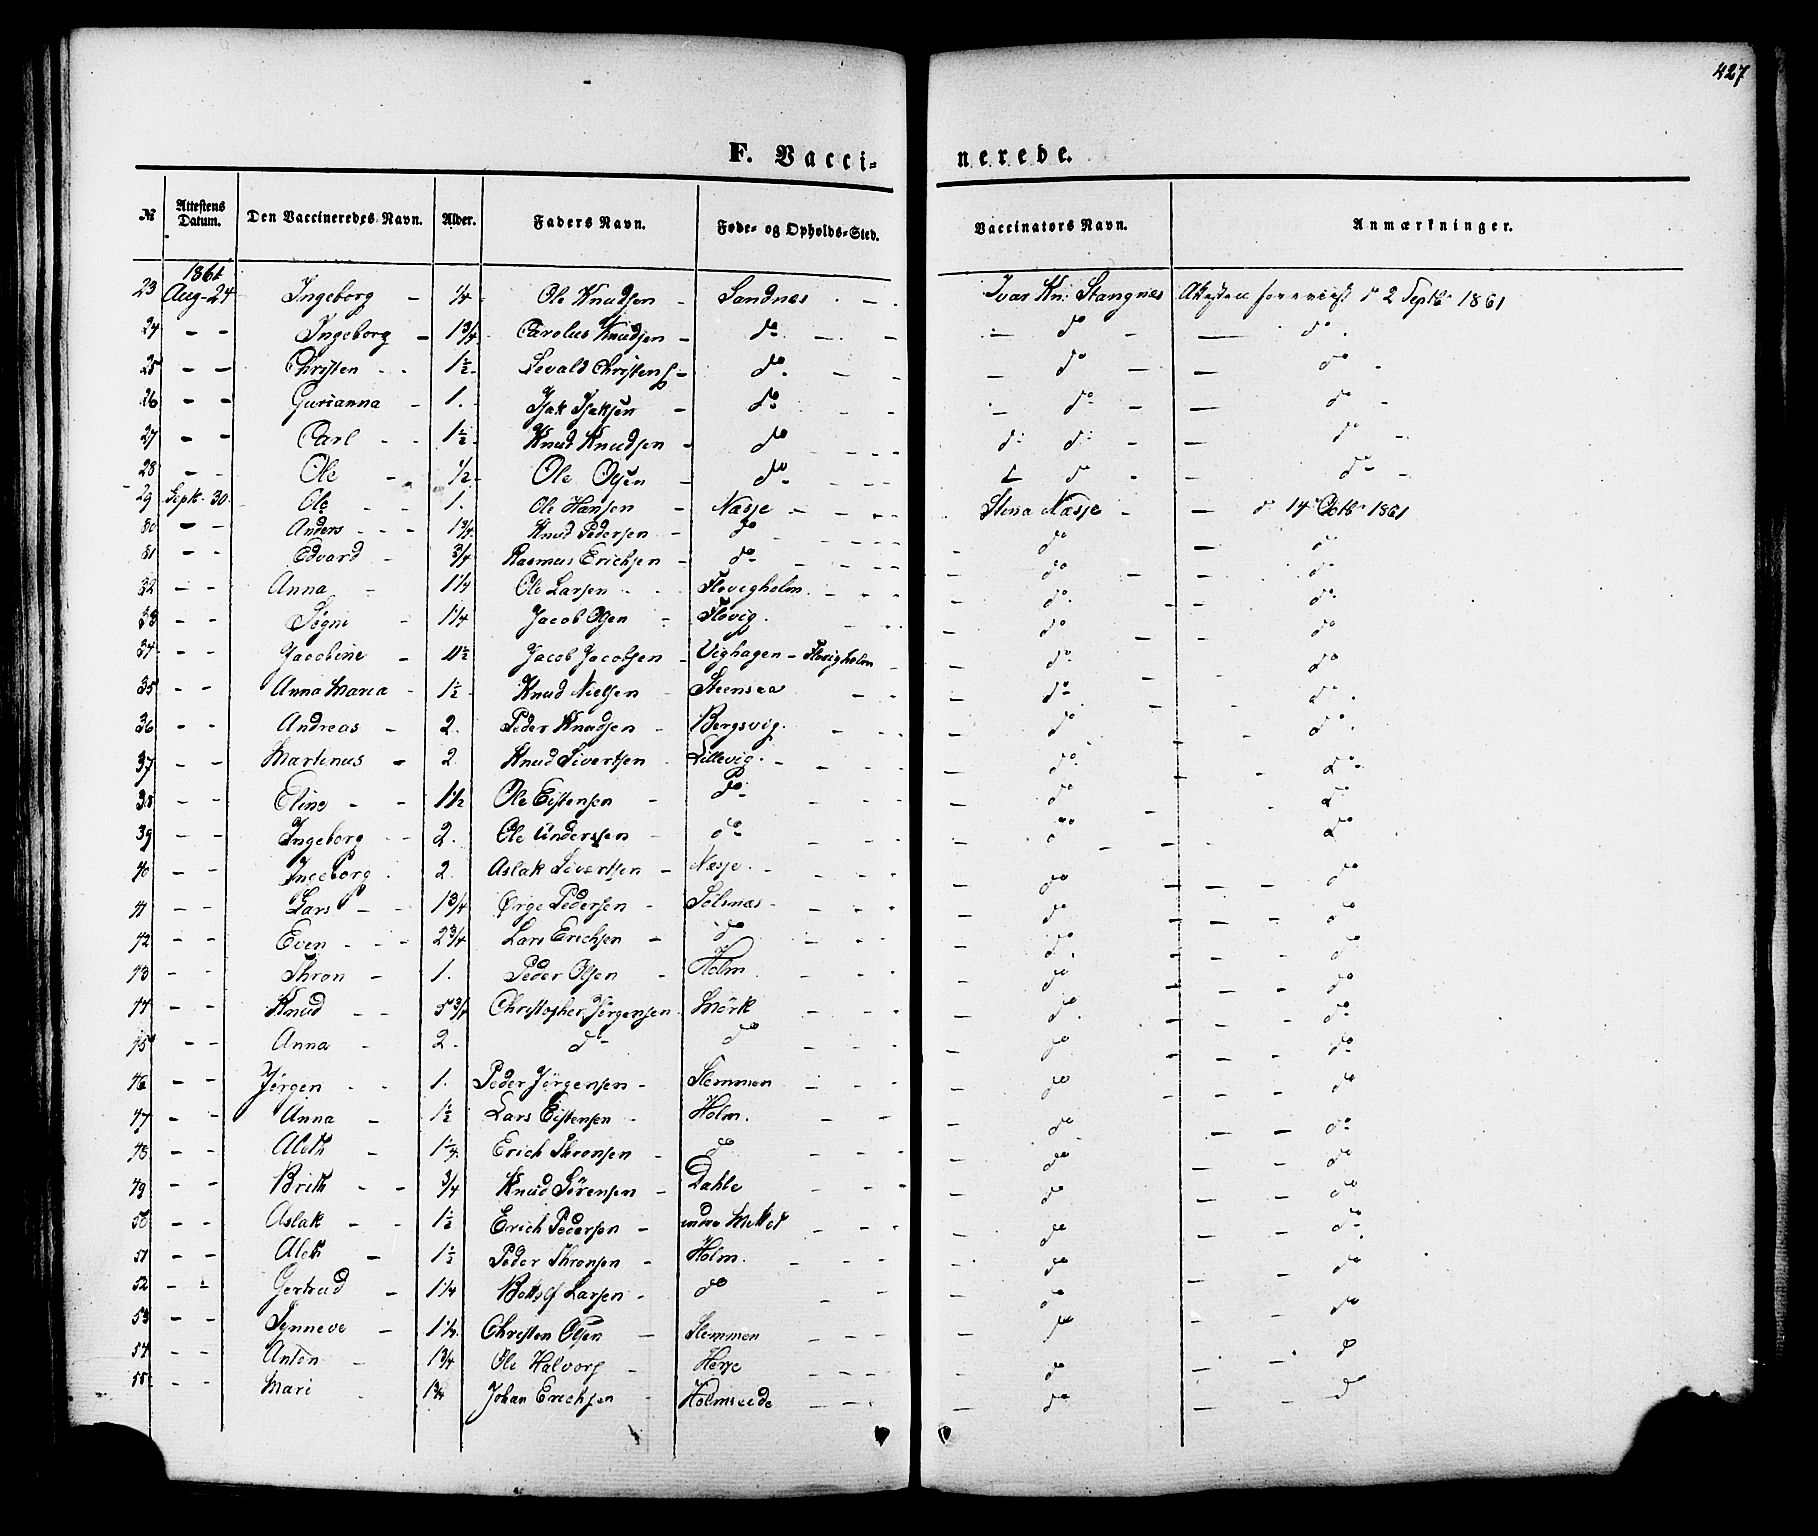 427
F. Vacci-nerede.
№ Attestens Datum. Den Vaccineredes Navn. Alder. Faders Navn. Føde- og Opholds-Sted. Vaccinators Navn. Anmærkninger.
1861
23 Aug-24 Ingeborg - 1/4 - Ole Knudsen - Sandnes - Ivar Kn: Stangnes Attesten forevist d 2 Septbr 1861
24 - - Ingeborg - 1 3/4 - Carolus Knudsen - do - - do - - do
25 - - Christen - - 1 1/2 - Sevald Christens - do - - do - - do
26 - - Gurianna - 1. Isak Isaksen - do - - do - - do -
27 - - Carl - - 1 1/2 - Knud Knudsen - do - - do do - - do -
28 - - Ole - 1/2 - Ole Olsen - do - - do - - do -
29 Septb. 30 Ole - - 1. Ole Hansen - Næsje - - Stina Næsje - - d 14 Octbr 1861
30 - - Anders - - 1 3/4 - Knud Pedersen - do - - do - d
31 - - Edvard - 3/4 - Rasmus Erichsen - do - - do - - do
32 - - Anna - 1 1/4 Ole Larsen - Flovigholm - - do - - do
33 - - Søgni - 1 1/4 Jacob Olsen - Flovig. - - do - - do
34 - - Jacobine - 11 1/2 Jacob Jacobsen - Vighagen - Flovigholm - do - - do
35 - - Anna Maria - 1 1/2 Knud Nielsen - Steensaa - - do - - do
36 - - Andreas - 2. Peder Knudsen - Bergsvig. - - do - - do
37 - - Martinus - 2. Knud Sivertsen - Lillevig. - - do - - do
38 - - Eline - - 1 1/2 Ole Eistensen - do - - do - - do
39 - - Ingeborg - - 2. Ole Anderssen - do - - do - - do
40 - - Ingeborg - 2. Aslak Sivertsen - Næsje. - - do - - do
41 - - Lars - - 1 3/4 Ørge Pedersen - Sølsnæs - - do - - do
42 - - Even - - - 2 3/4 Lars Erichsen - do - - do - - do
43 - - Thron - 1. Peder Olsen - Holm. - - do - - do
44 - - Knud - - 5 3/4 Christopher Jørgensen. Mörk - - do - - do
45 - - Anna - 2. do do - - do - - do
46 - - Jørgen - - 1. Peder Jørgensen - Flemmen - - do - - do
47 - - Anna - 1 1/2 Lars Eistensen - Holm. - - do - - do
48 - - Aleth - 1 1/4. Erich Thronsen - do - - do - - do
49 - - Brith - - 3/4 Knud Sørensen - Dahle - - do - - do
50 - - Aslak - - 1 1/2 Erich Pedersen - - - do - - do
51 - - Aleth - 1 1/2 Peder Thronsen - Holm. - - do - - do
52 - - Gertrud - 1 1/4 Larsen - do - - do - - do
53 - - Synneve - Christen Olsen - Flemmen - - do - - do
54 - - Anton - 1 3/4 Ole Halvors - Herje - - do - - do
55 - - Mari - 1 3/4 Johan Erichsen - Holmseide - - do - - d